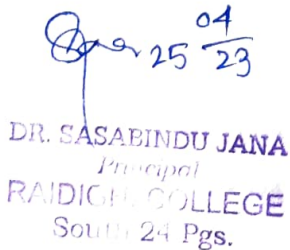 25 04/23
DR. SASABINDU JANA
Principal
RAIDIGHI COLLEGE
South 24 Pgs.